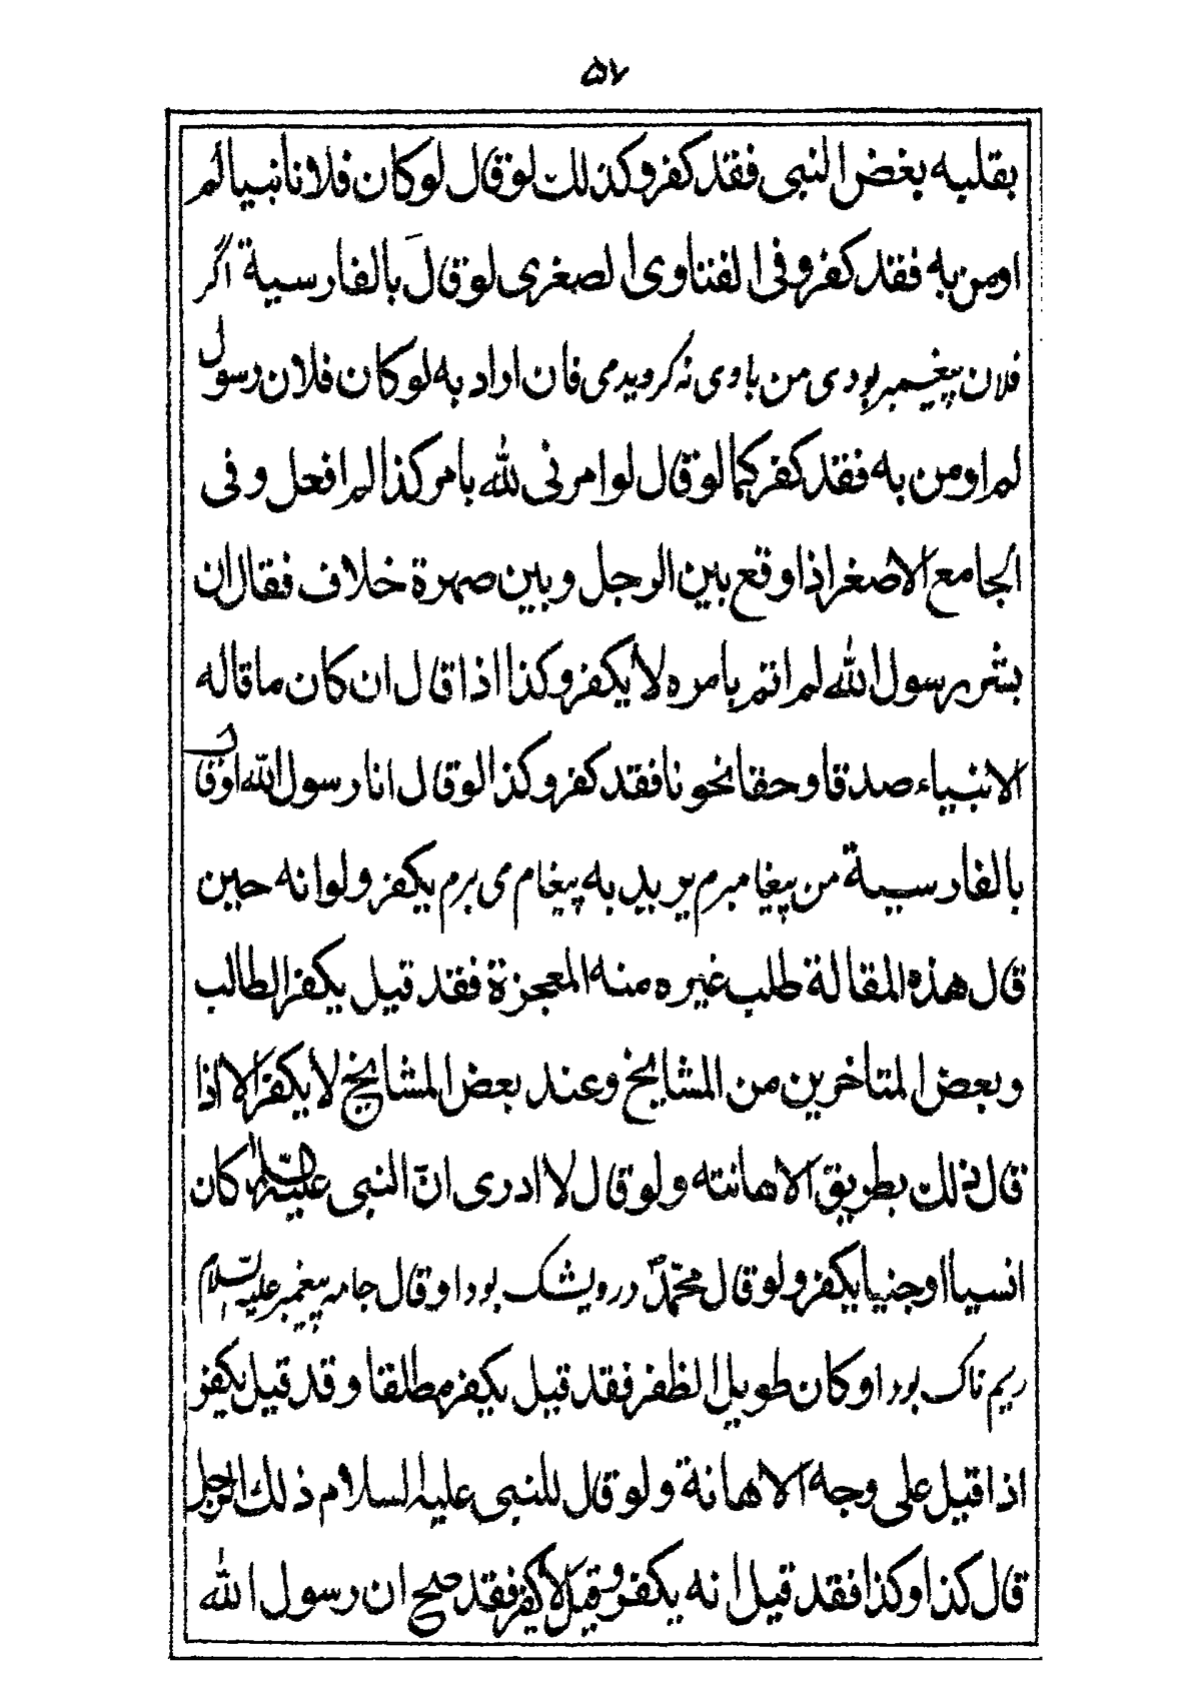 ٥٧
بقلبه بغض النبى فقد كفر وكذلك لو قال لو كان فلانا نبيا لم
اومن به فقد كفر وفى الفتاوى الصغرى لو قالَ بالفارسية اگر
فلان پيغمبر بودى من باوى نه كرويدمى فان اراد به لو كان فلان رسول
لم اومن به فقد كفر كما لو قال لو امرنى لله بامر كذا لم افعل وفى
الجامع الاصغر اذا وقع بين الرجل وبين صهرة خلاف فقال ان
بشر رسول الله لم ائتم بامره لا يكفر وكذا اذا قال ان كان ما قاله
الانبياء صدقا وحقا نحونا فقد كفر وكذا لو قال انا رسول الله او قال
بالفارسية من پيغامبرم يريد به پيغام مى برم يكفر ولو انه حين
قال هذه المقالة طلب غيره منه المعجزة فقد قيل يكفر الطالب
وبعض المتاخرين من المشايخ وعند بعض المشايخ لا يكفر الا اذا
قال ذلك بطريق الاهانته ولو قال لا ادرى انّ النبى عليه السلام كان
انسيا او جنيا يكفر ولو قال محمّدؐ درويشک بود او قال جامه پيغمبر عليه السّلام
ريم ناک بود او كان طويل الظفر فقد قيل يكفر مطلقا وقد قيل يكفر
اذا قيل على وجه الاهانة ولو قال للنبى عليه السلام ذلك الرجل
قال كذا وكذا فقد قيل انه يكفر وقيل لا يكفر فقد صح ان رسول الله